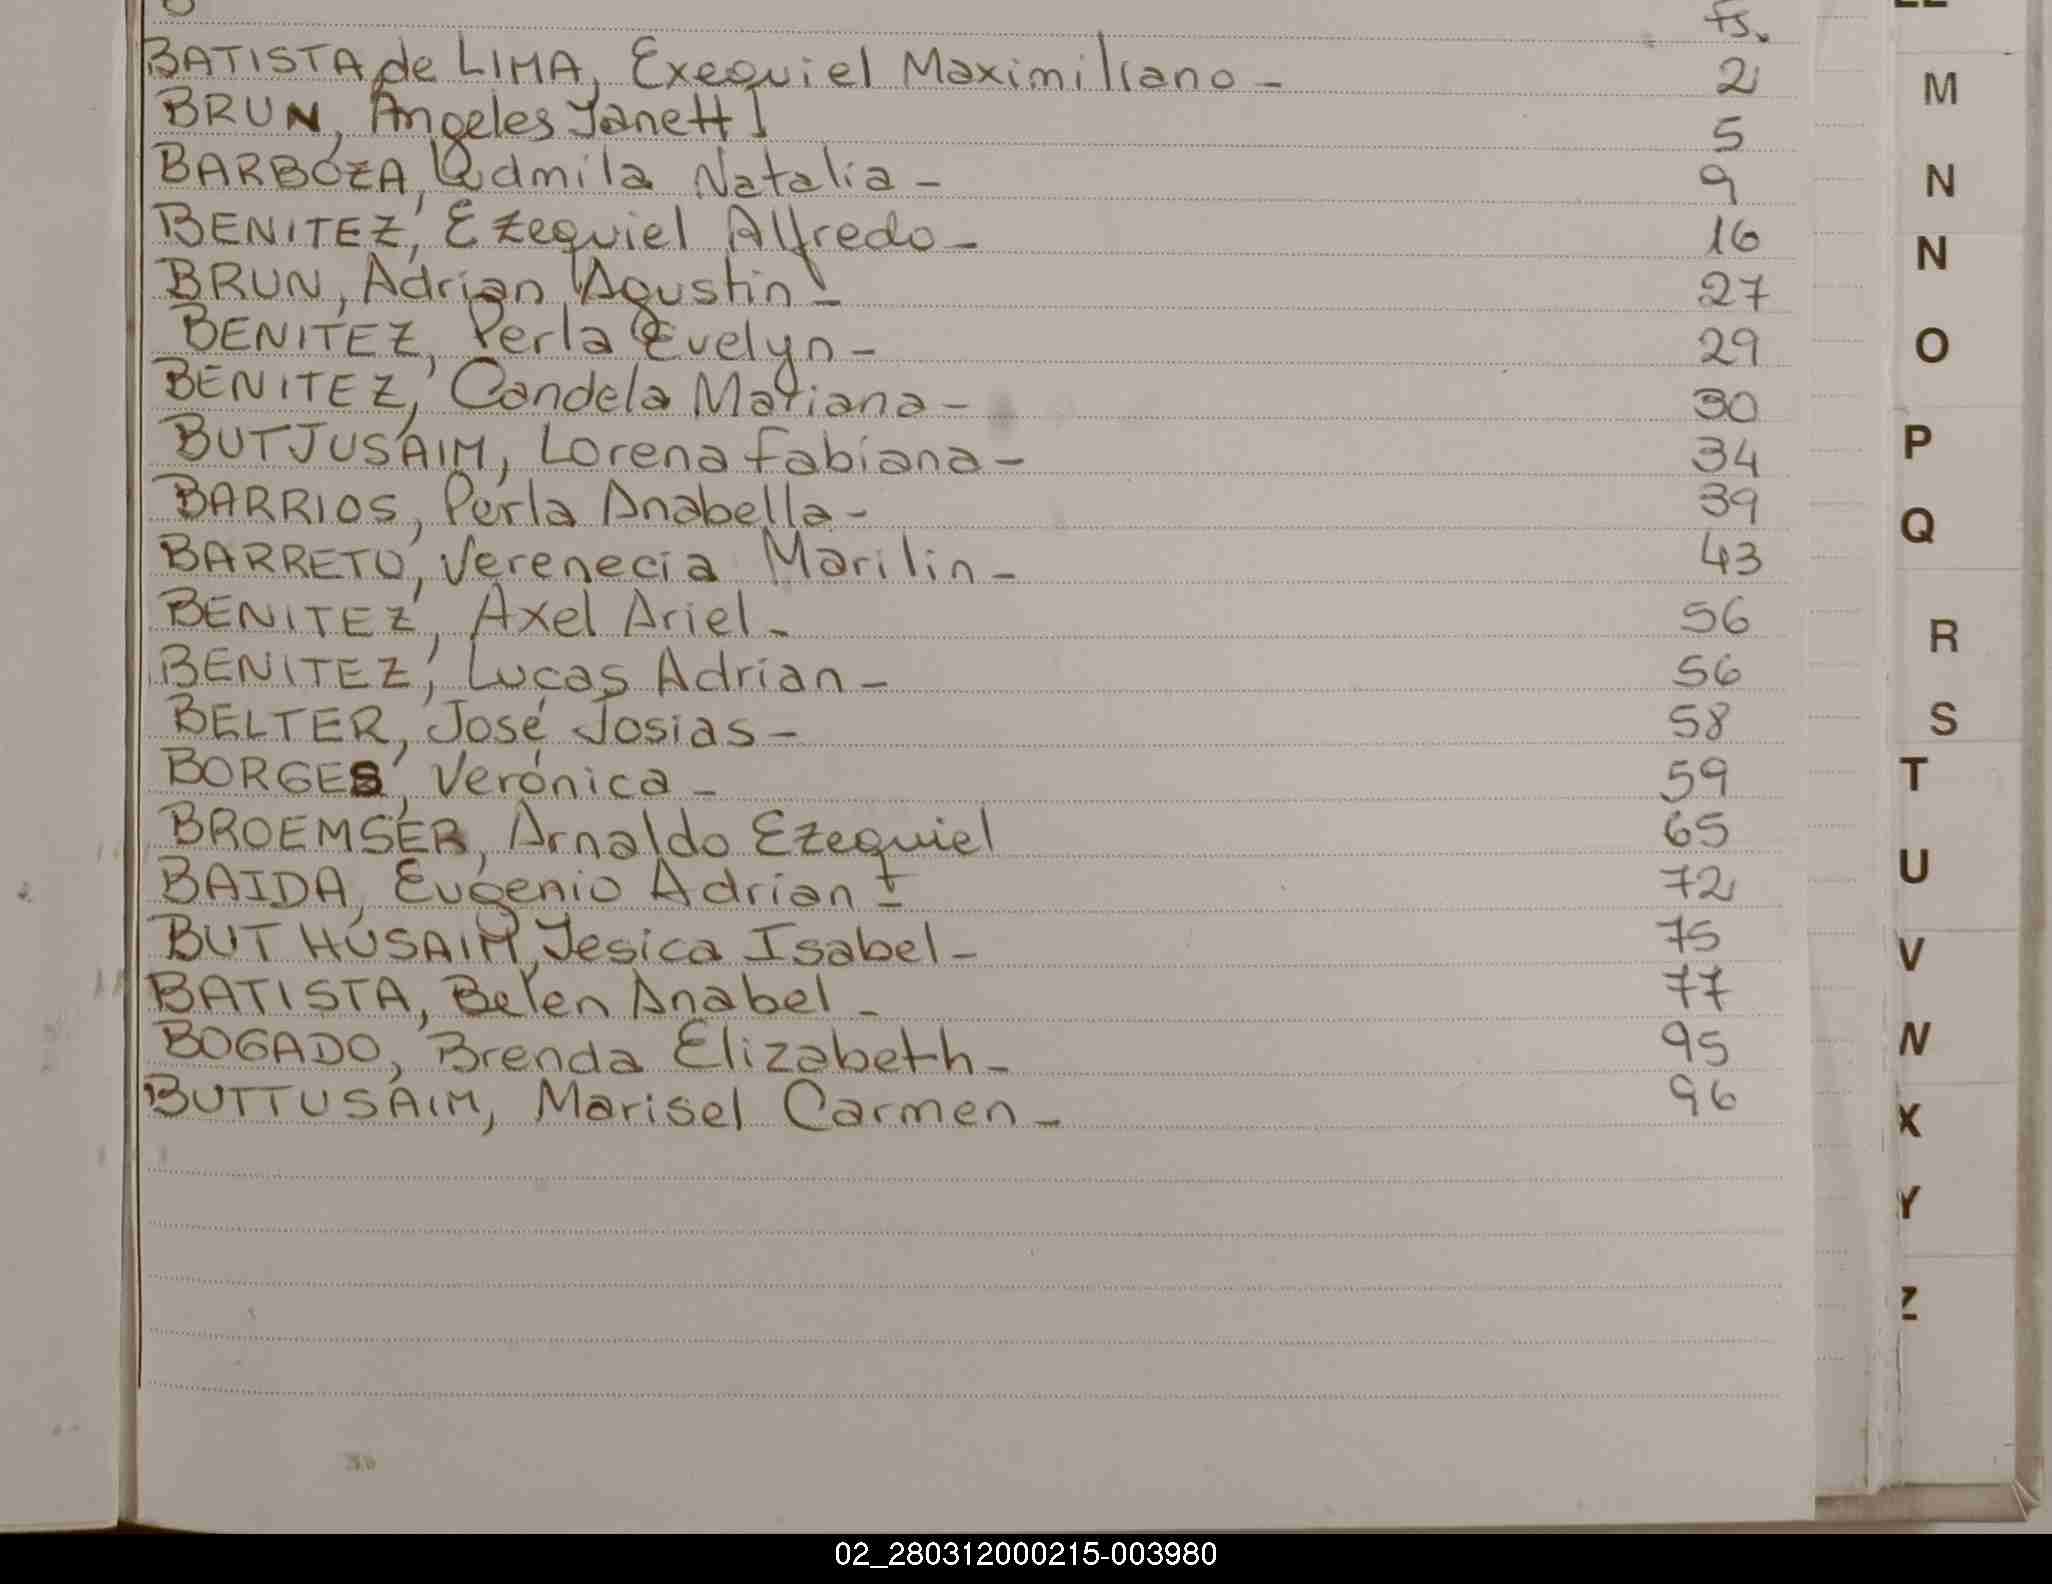 Fs.
BATISTA de LIMA, Exequiel Maximiliano - 2
BRUN, Angeles Yanett 5
BARBOZA, Ludmila Natalia - 9
BENITEZ, Ezequiel Alfredo - 16
BRUN, Adrian Agustin - 27
BENITEZ, Perla Evelyn - 29
BENITEZ, Candela Mariana - 30
BUTJUSAIM, Lorena Fabiana - 34
BARRIOS, Perla Anabella - 39
BARRETO, Verenecia Marilin - 43
BENITEZ, Axel Ariel - 56
BENITEZ, Lucas Adrian - 56
BELTER, José Josias - 58
BORGES, Verónica - 59
BROEMSER, Arnaldo Ezequiel 65
BAIDA, Eugenio Adrian - 72
BUT HUSAIM, Yesica Isabel - 75
BATISTA, Belen Anabel - 77
BOGADO, Brenda Elizabeth - 95
BUTTUSAIM, Marisel Carmen - 96
M
N
N
O
P
Q
R
S
T
U
V
W
X
Y
Z
02_280312000215-003980